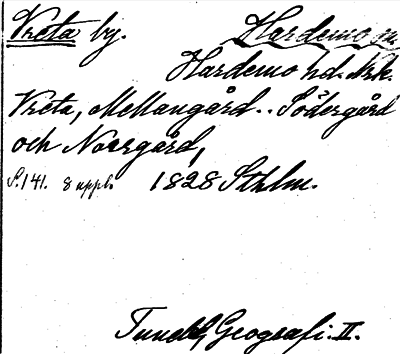 Vreta by. Hardemo sn.
Hardemo hd. Nrk.
Vreta, Mellangård.. Södergård
och Norrgård,
S. 141. 8 uppl. 1828 Sthlm.
Geografi. II.